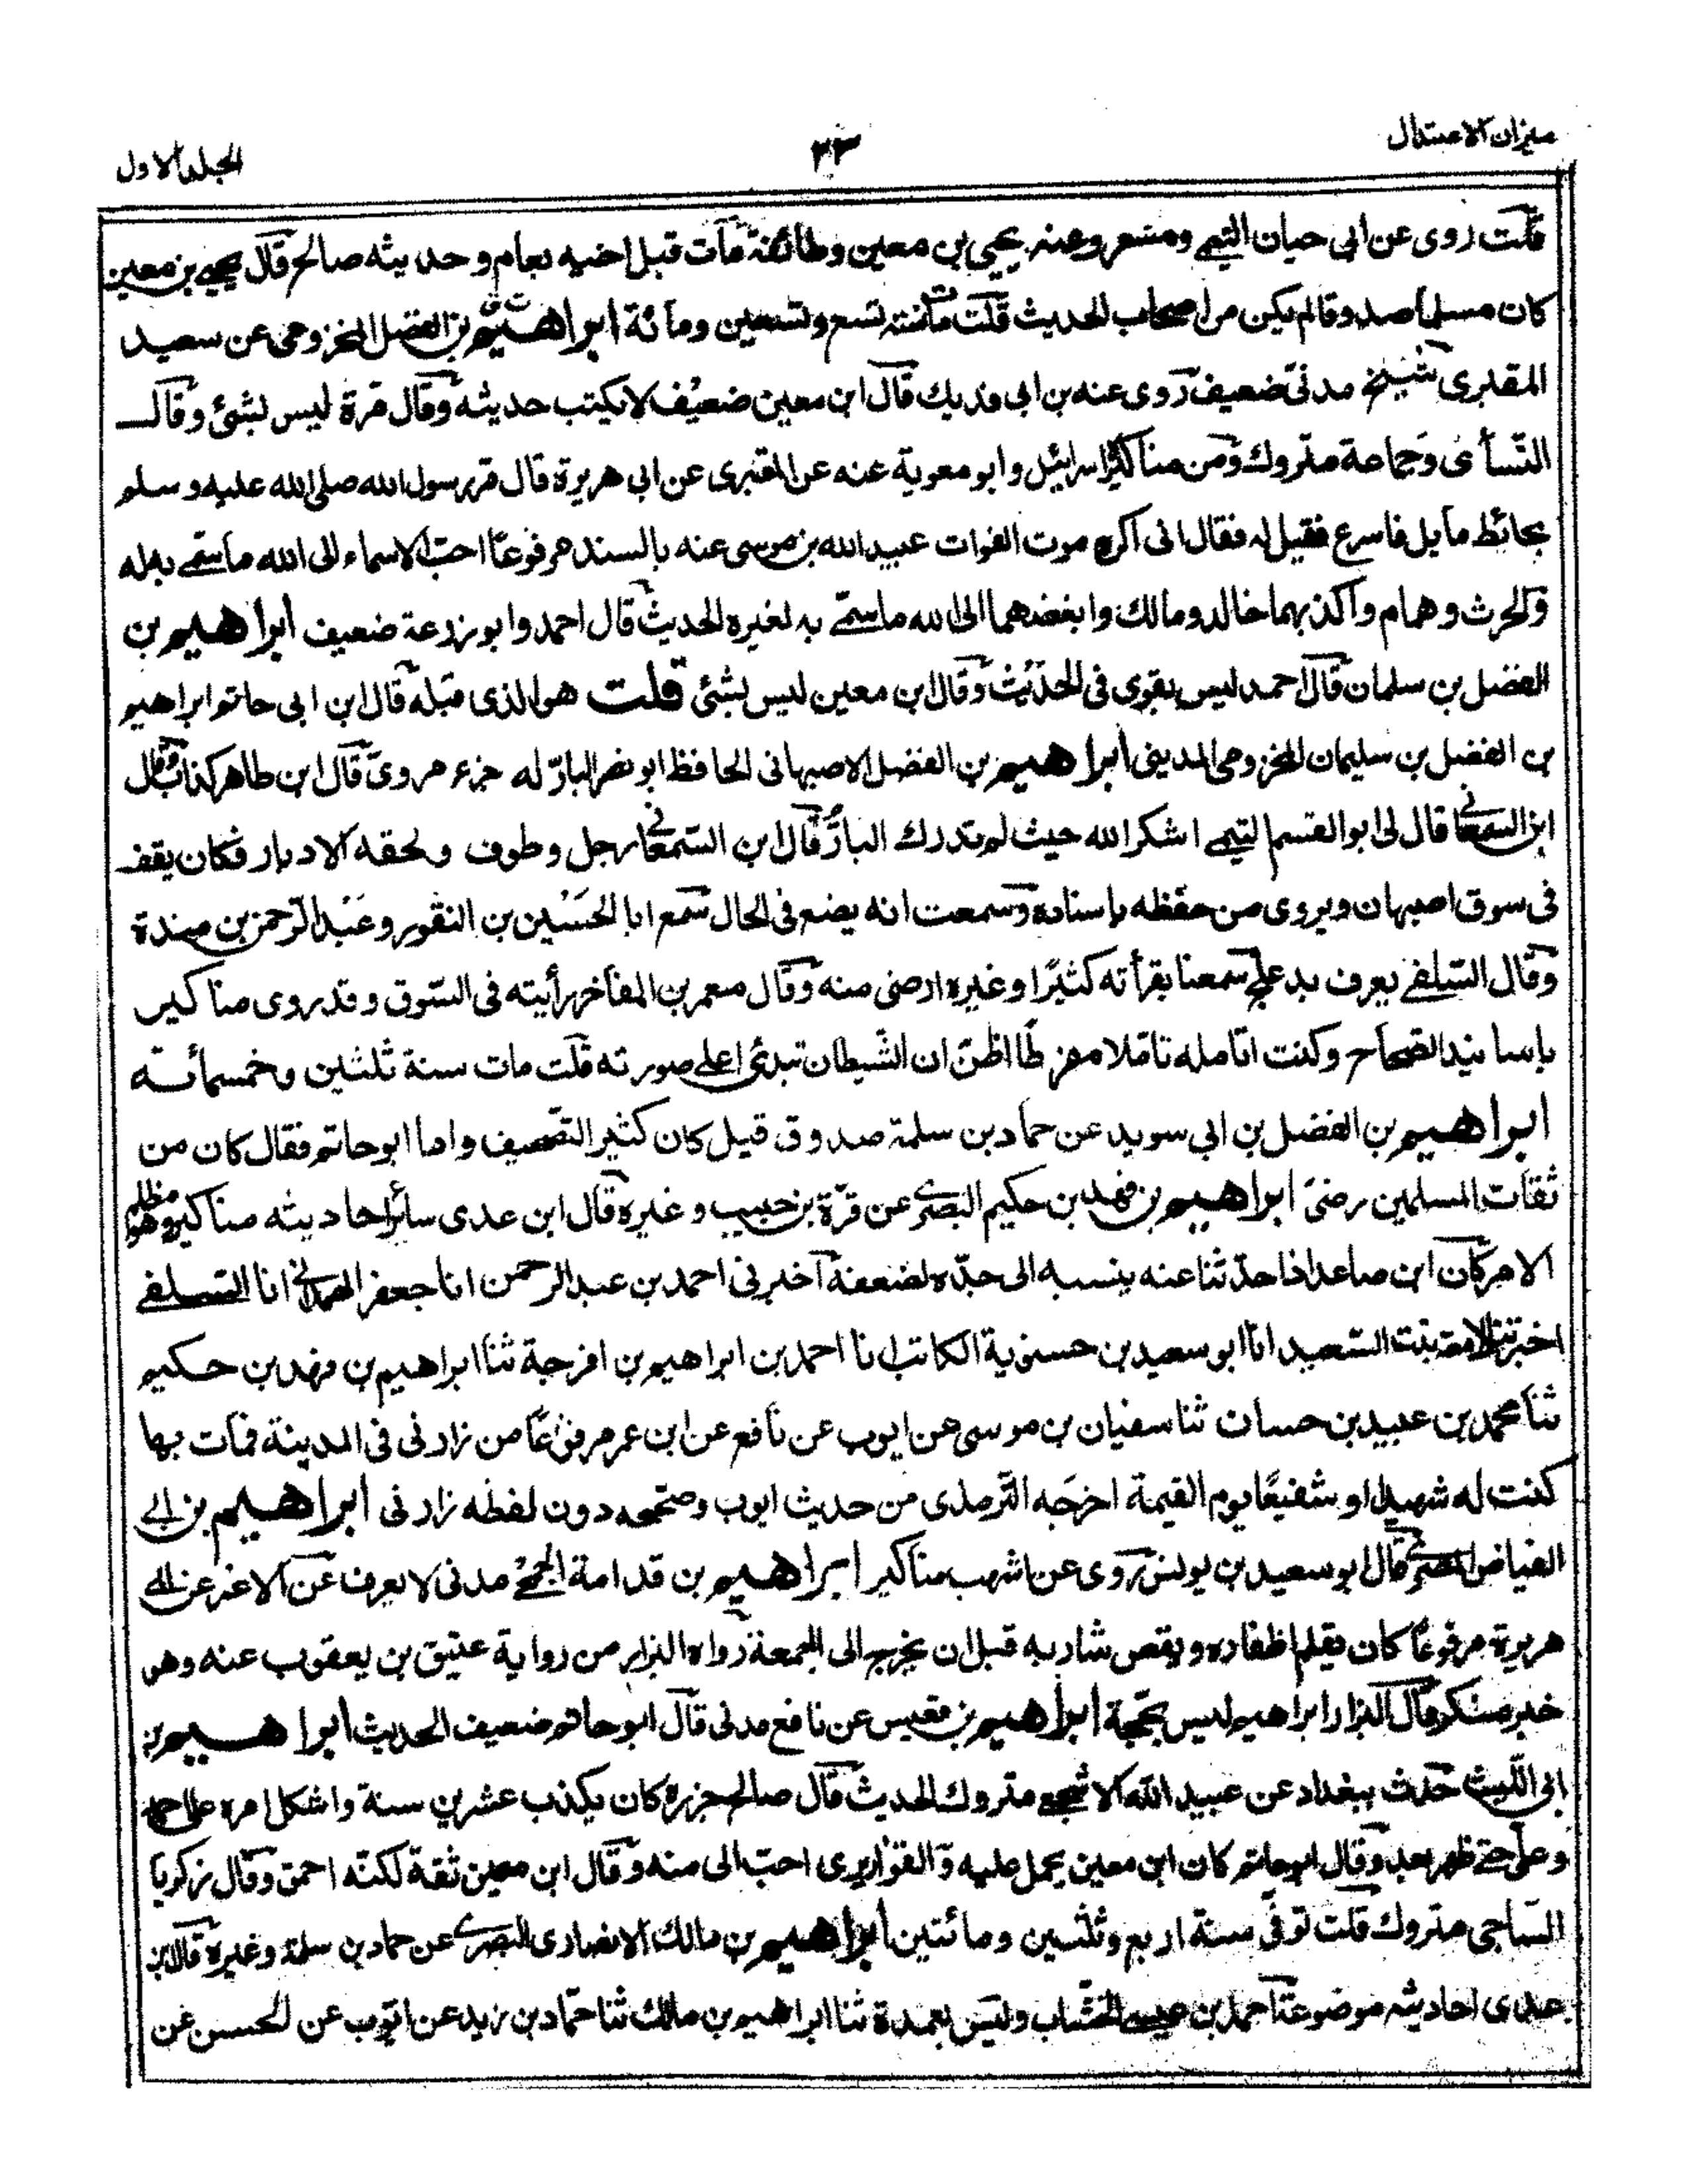 ميزان الاعتدال
٣٣
الجلد الاول
قلت روى عن ابى حيان التيمى ومسعر وعنه يحيى بن معين وطائفة مات قبل اخيه بعام وحديثه صالح قال يحيى بن معين
كان مسلما صدوقا لم يكن من اصحاب الحديث قلت مات سنة تسع وتسعين ومائة ابراهيم بن الفضل المخزومى عن سعيد
المقبرى شيخ مدنى ضعيف روى عنه بن ابى فديك قال ابن معين ضعيف لا يكتب حديثه وقال مرة ليس بشئ وقال
النسأى وجماعة متروك ومن مناكيره اسرائيل وابو معوية عنه عن المقبرى عن ابى هريرة قال مر رسول الله صلى الله عليه وسلم
بحائط مايل فاسرع فقيل له فقال انى اكره موت الفوات عبيد الله بن موسى عنه بالسند مرفوعا احب الاسماء الى الله ما سمى به له
والحرث وهمام واكذبهما خالد ومالك وابغضهما الى الله ما سمى به لغيره الحديث قال احمد وابو زرعة ضعيف ابراهيم بن
الفضل بن سلمان قال احمد ليس بقوى فى الحديث وقال ابن معين ليس بشئ قلت هو الذى قبله قال ابن ابى حاتم ابراهيم
بن الفضل بن سليمان المخزومى المدينى ابراهيم بن الفضل الاصبهانى الحافظ ابو نصر البار له جزء مروى قال ابن طاهر كذاب وقال
ابن السمعانى قال لى ابو القسم التيمى اشكر الله حيث لم تدرك البار وقال ابن السمعانى رجل وطوف ولحقه الادبار فكان يقف
فى سوق اصبهان ويروى من حفظه باسناده وسمعت انه يضع فى الحال سمع ابا الحسين بن النقور وعبد الرحمن بن مندة
وقال السلفى يعرف بدعلج سمعنا بقرأته كثيرا وغيره ارضى منه وقال معمر بن الفاخر رأيته فى السوق وقد روى مناكير
باسانيد الصحاح وكنت اتامله تاملا مفرطا اظن ان الشيطان تبدى اعلى صورته قلت مات سنة ثلثين وخمسمائة
ابراهيم بن الفضل بن ابى سويد عن حماد بن سلمة صدوق قيل كان كثير التصحيف واما ابو حاتم فقال كان من
ثقات المسلمين رضى ابراهيم بن فهد بن حكيم البصرى عن قرة بن حبيب وغيره قال ابن عدى سائر احاديثه مناكير وهو مظلم
الامر كان ابن صاعد اذا حدثنا عنه ينسبه الى جده لضعفه اخبرنى احمد بن عبد الرحمن انا جعفر الهمدانى انا السلفى
اخبرتنا لامعة بنت السعيد انا ابو سعيد بن حسنوية الكاتب انا احمد بن ابراهيم بن افرجة ثنا ابراهيم بن فهد بن حكيم
ثنا محمد بن عبيد بن حسان ثنا سفيان بن موسى عن ايوب عن نافع عن ابن عمر مرفوعا من زارنى فى المدينة فمات بها
كنت له شهيدا او شفيعا يوم القيمة اخرجه الترمذى من حديث ايوب وصححه دون لفظه زارنى ابراهيم بن ابى
الفياض المصرى قال ابو سعيد بن يونس روى عن اشهب مناكير ابراهيم بن قدامة الجمحى مدنى لا يعرف عن الاغر عن ابى
هريرة مرفوعا كان يقلم اظفاره ويقص شاربه قبل ان يخرج الى الجمعة رواه البزار من رواية عتيق بن يعقوب عنه وهو
خبر منكر قال البزار ابراهيم ليس بحجة ابراهيم بن قعيس عن نافع مدنى قال ابو حاتم ضعيف الحديث ابراهيم بن
ابى الليث حدث ببغداد عن عبيد الله الاشجعى متروك الحديث قال صالح جزرة كان يكذب عشرين سنة واشكل امره على احمد
وعلى حتى ظهر بعد وقال ابو حاتم كان ابن معين يحمل عليه والقواريرى احب الى منه وقال ابن معين ثقة لكنه احمق وقال زكريا
الساجى متروك قلت توفى سنة اربع وثلثين ومائتين ابراهيم بن مالك الانصارى البصرى عن حماد بن سلمة وغيره قال ابن
عدى احاديثه موضوعة احمد بن عيسى الخشاب وليس بعمدة ثنا ابراهيم بن مالك ثنا حماد بن زيد عن ايوب عن الحسن عن